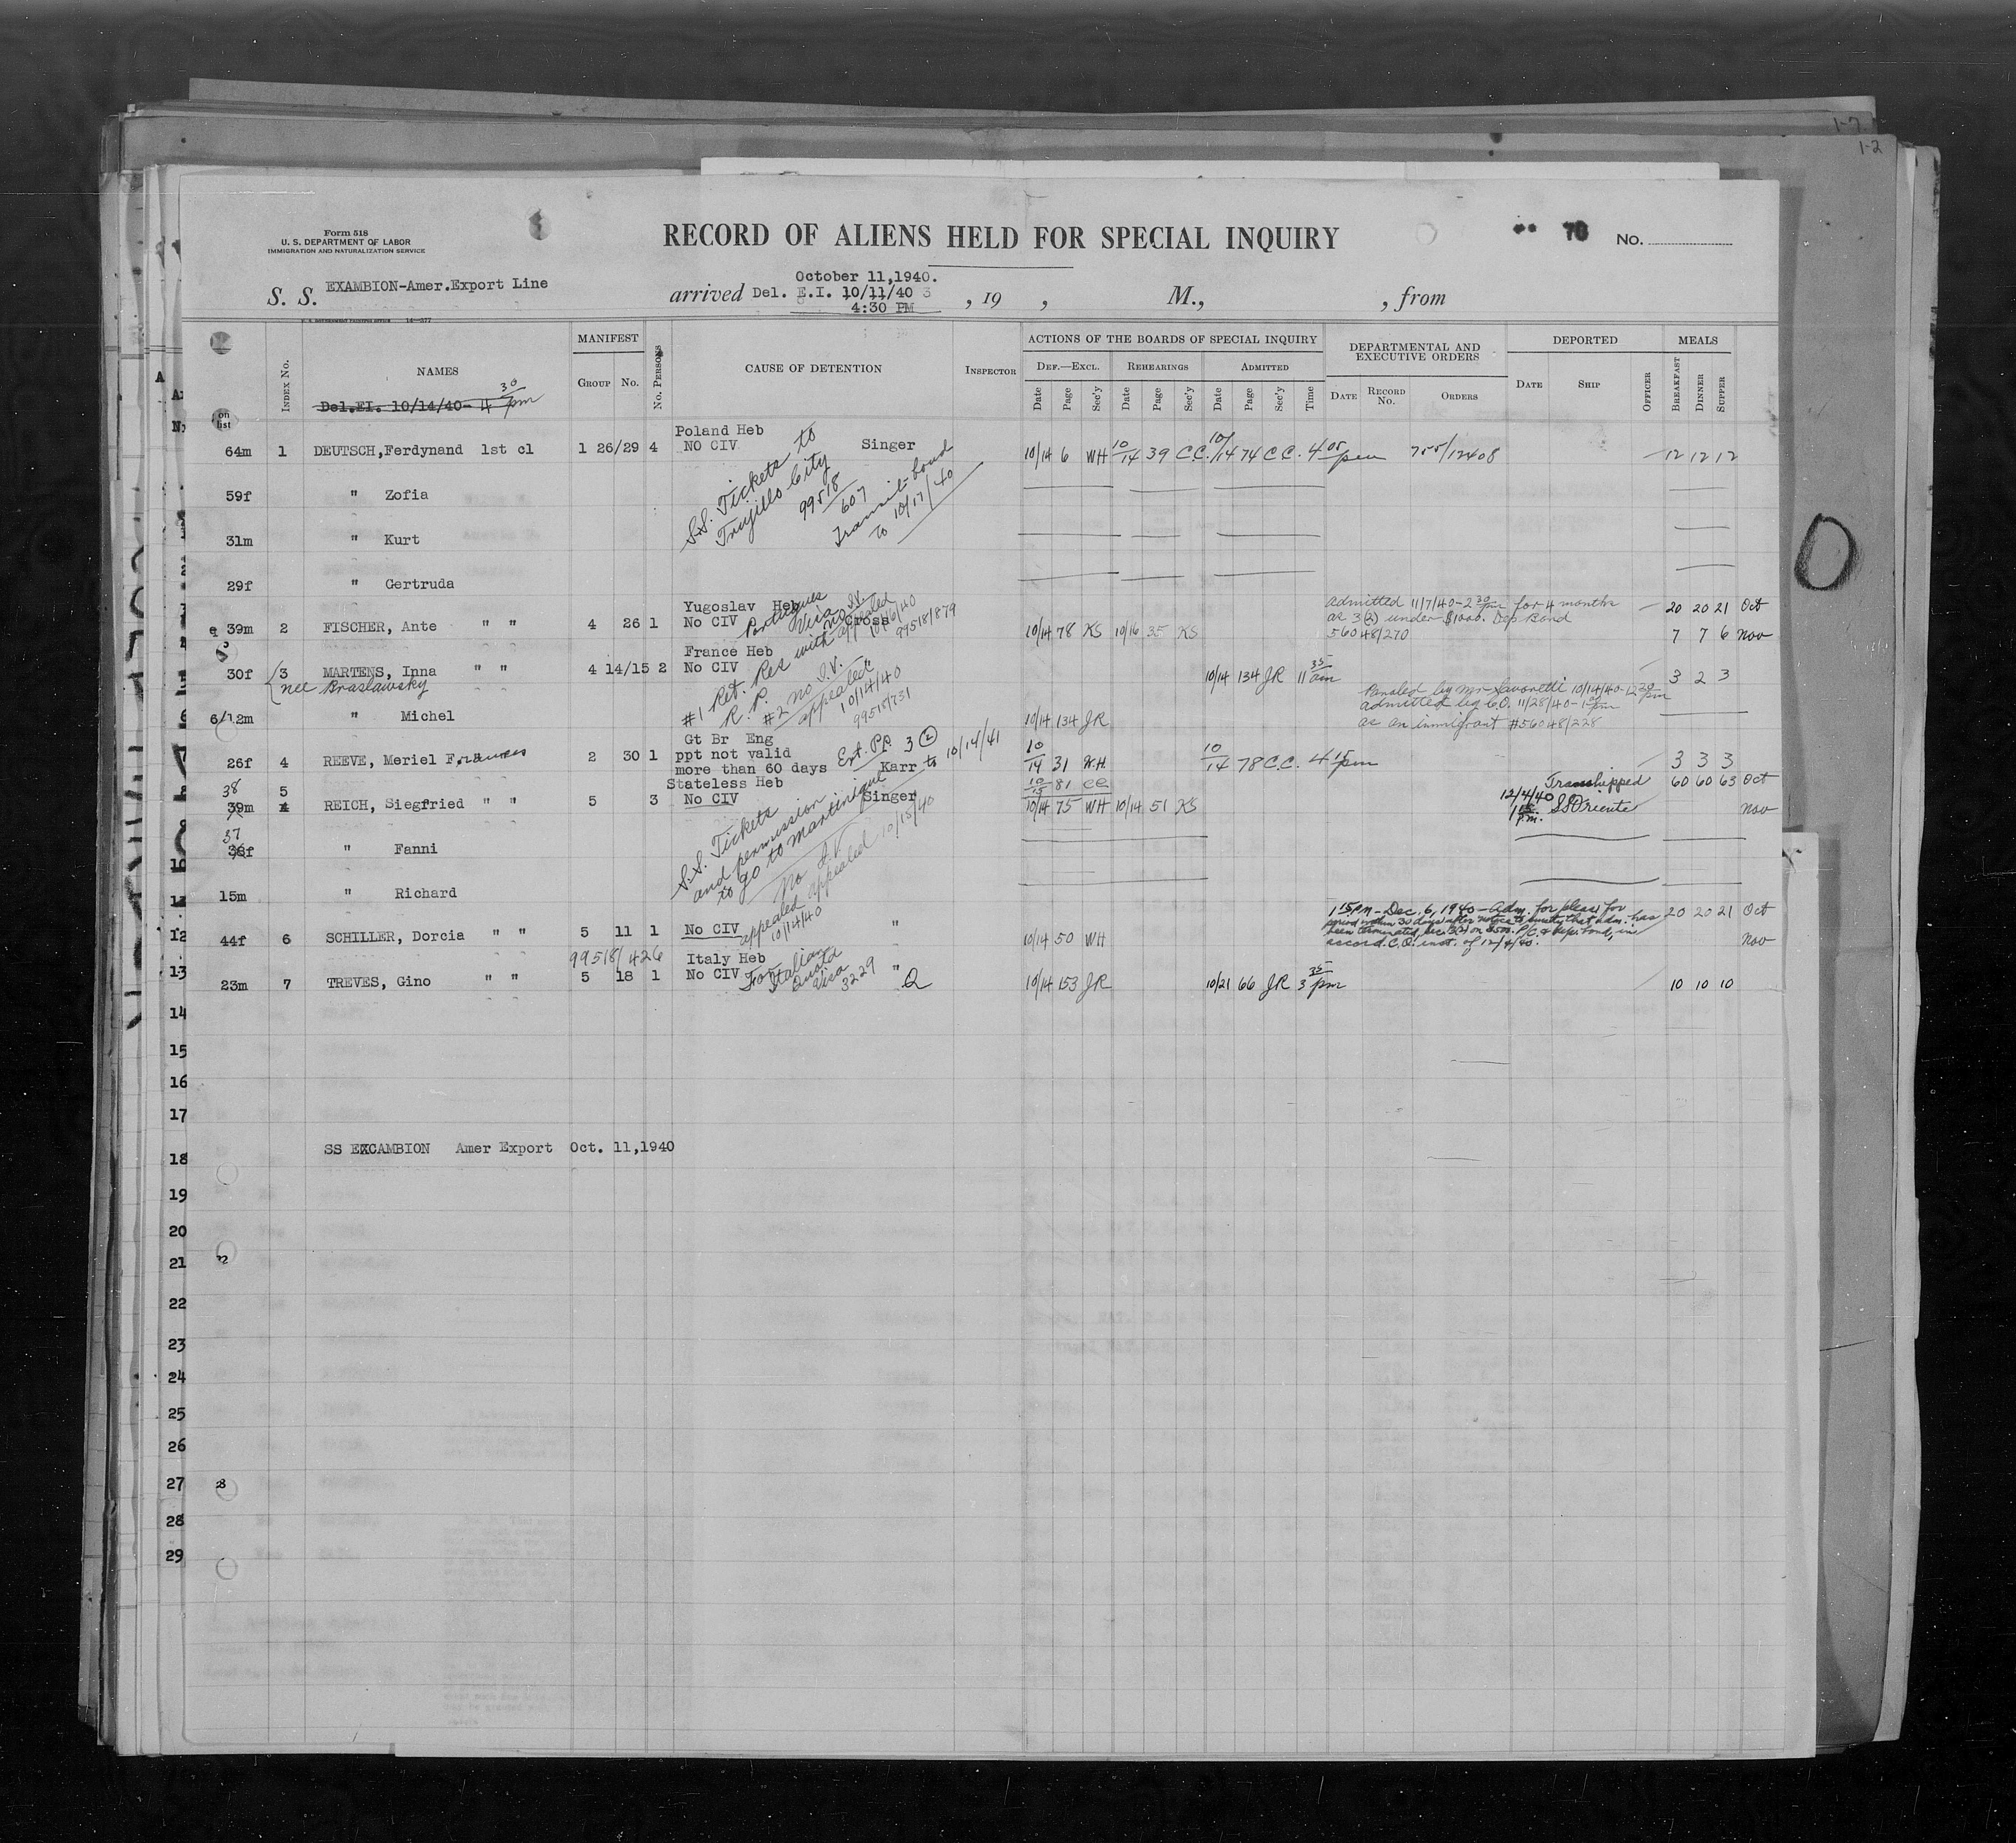 1-7
1-2
Form 518
U. S. DEPARTMENT OF LABOR
IMMIGRATION AND NATURALIZATION SERVICE
RECORD OF ALIENS HELD FOR SPECIAL INQUIRY
70 No.
S. S. EXAMBION-Amer.Export Line
October 11,1940.
arrived Del. E.I. 10/11/40 , 19 , M., , from
4:30 PM
INDEX No.
NAMES
Del.EI. 10/14/40- 4 30 pm
MANIFEST
GROUP No.
No. PERSONS
CAUSE OF DETENTION
INSPECTOR
ACTIONS OF THE BOARDS OF SPECIAL INQUIRY
DEF.—EXCL. REHEARINGS ADMITTED
Date Page Sec'y Date Page Sec'y Date Page Sec'y Time
DEPARTMENTAL AND EXECUTIVE ORDERS
DATE RECORD No. ORDERS
DEPORTED
DATE SHIP OFFICER
MEALS
BREAKFAST DINNER SUPPER
on list
Poland Heb
64m 1 DEUTSCH,Ferdynand 1st cl 1 26/29 4 NO CIV Singer 10/14 6 WH 10/14 39 C C. 10/14 74 C C. 4 05 pm 755/12408 12 12 12
S.S. Tickets to
Trujillo City
99518
607
Transit bond
to 10/17/40
59f " Zofia
31m " Kurt
29f " Gertruda
Yugoslav Heb
39m 2 FISCHER, Ante " " 4 26 1 No CIV Cross 10/14 78 KS 10/16 35 KS
Portugues
Visa
No I.V.
appealed
10/16/40
99518/879
Admitted 11/7/40-2 30 pm for 4 months
as 3(2) under $1000. Dep Bond
56048/270
20 20 21 Oct
7 7 6 Nov
France Heb
30f 3 MARTENS, Inna " " 4 14/15 2 No CIV 10/14 134 JR 11 35 am 3 2 3
nee Braslawsky
#1 Ret. Res with
R. P.
#2 no I.V.
appealed
10/14/40
99518/731
Paroled by Mr. Savoretti 10/14/40-12 30 pm
admitted by C.O. 11/28/40-1 pm
as an immigrant #56048/228
6/12m " Michel 10/14 134 JR
Gt Br Eng
26f 4 REEVE, Meriel Frances 2 30 1 ppt not valid
more than 60 days Karr
Ext. Pp. 3 (2) to 10/14/41
10/14 31 W.H 10/14 78 C.C. 4 15 pm 3 3 3
Stateless Heb
38 39m 5 4 REICH, Siegfried " " 5 3 No CIV Singer 10/15 81 CC
10/14 75 WH 10/14 51 KS
S.S. Tickets
and permission
to go to Martinique
No I.V.
appealed 10/15/40
12/4/40 Transhipped
1 15 P.M. SS Oriente
60 60 63 Oct
Nov
37 38f " Fanni
15m " Richard
44f 6 SCHILLER, Dorcia " " 5 11 1 No CIV " 10/14 50 WH
appealed
10/14/40
99518/426
1 15 PM - Dec. 6, 1940 - Adm. for pleas for
period within 30 days after notice to surety that adm. has
been terminated, Sec. 3(2) on $500. P/C. & dep. bond, in
accord. C.O. inst. of 12/4/40.
20 20 21 Oct
Nov
Italy Heb
23m 7 TREVES, Gino " " 5 18 1 No CIV " Q 10/14 153 JR 10/21 66 JR 3 35 pm 10 10 10
For Italian
Quota
Visa
3229
10
12
13
14
15
16
17
SS EXCAMBION Amer Export Oct. 11,1940
18
19
20
21
22
23
24
25
26
27
28
29